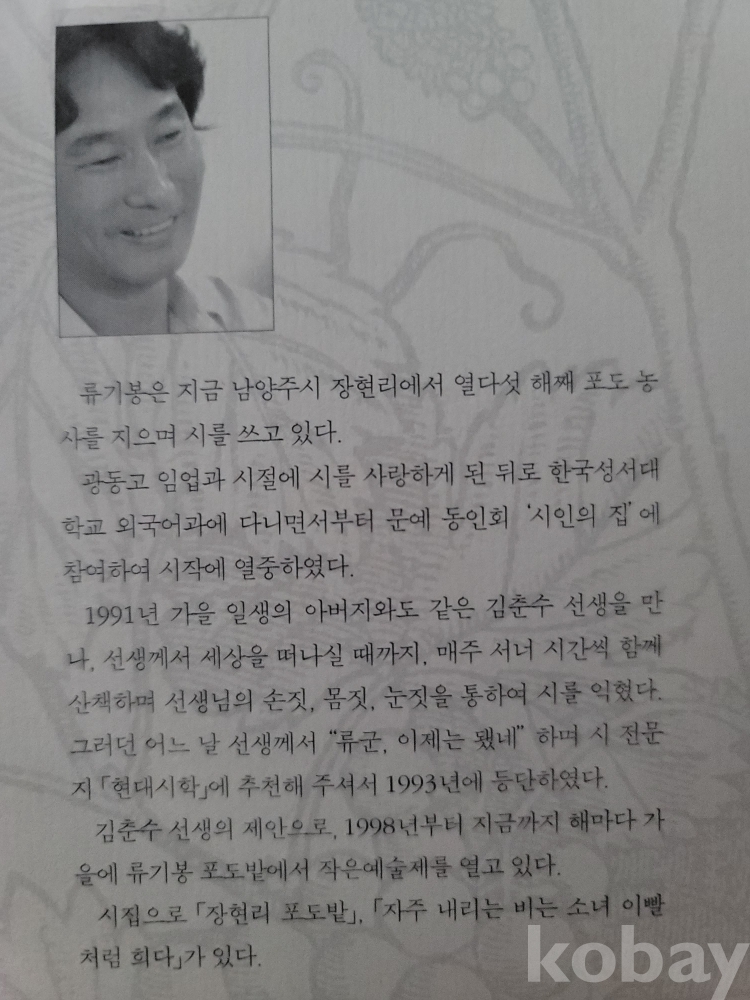 류기봉은 지금 남양주시 장현리에서 열다섯 해째 포도 농
사를 지으며 시를 쓰고 있다.
광동고 임업과 시절에 시를 사랑하게 된 뒤로 한국성서대
학교 외국어과에 다니면서부터 문예 동인회 ‘시인의 집’에
참여하여 시작에 열중하였다.
1991년 가을 일생의 아버지와도 같은 김춘수 선생을 만
나, 선생께서 세상을 떠나실 때까지, 매주 서너 시간씩 함께
산책하며 선생님의 손짓, 몸짓, 눈짓을 통하여 시를 익혔다.
그러던 어느 날 선생께서 “류군, 이제는 됐네” 하며 시 전문
지 「현대시학」에 추천해 주셔서 1993년에 등단하였다.
김춘수 선생의 제안으로, 1998년부터 지금까지 해마다 가
을에 류기봉 포도밭에서 작은예술제를 열고 있다.
시집으로 「장현리 포도밭」, 「자주 내리는 비는 소녀 이빨
처럼 희다」가 있다.
kobay